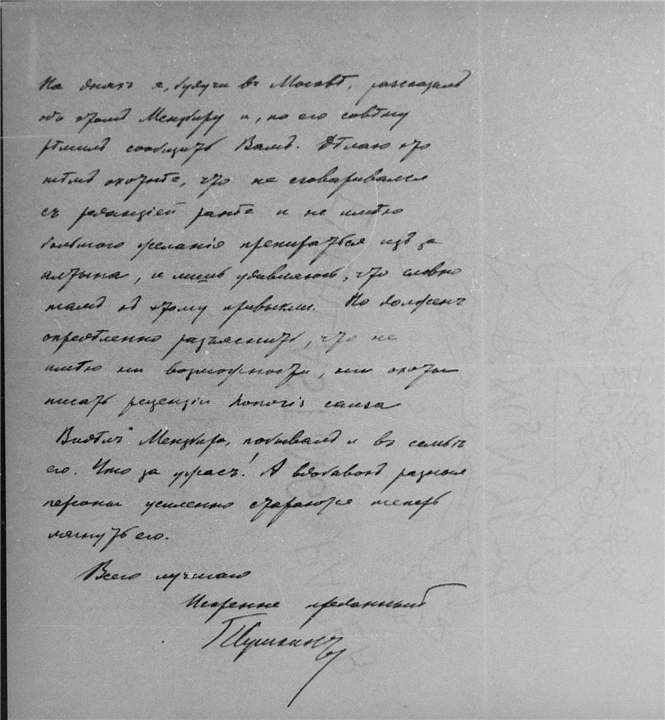 На дняхъ я, будучи въ Москвѣ, разсказалъ
объ этомъ Мензбиру и, по его совѣту
рѣшилъ сообщить Вамъ. Дѣлаю это
тѣмъ охотнѣе, что не сговаривался
съ редакціей ранѣе и не имѣю
большого желанія препираться изъ за
алтына, и лишь удивляюсь, что словно
тамъ къ этому привыкли. Но долженъ
опредѣленно разъяснить, что не
имѣю ни возможности, ни охоты
писать рецензіи honoris causa
Видѣлъ Мензбира, побывалъ и въ семьѣ
его. Что за ужасъ! А вдобавокъ разныя
персоны усиленно стараются теперь
лягнуть его.
Всего лучшаго
Искренне преданный